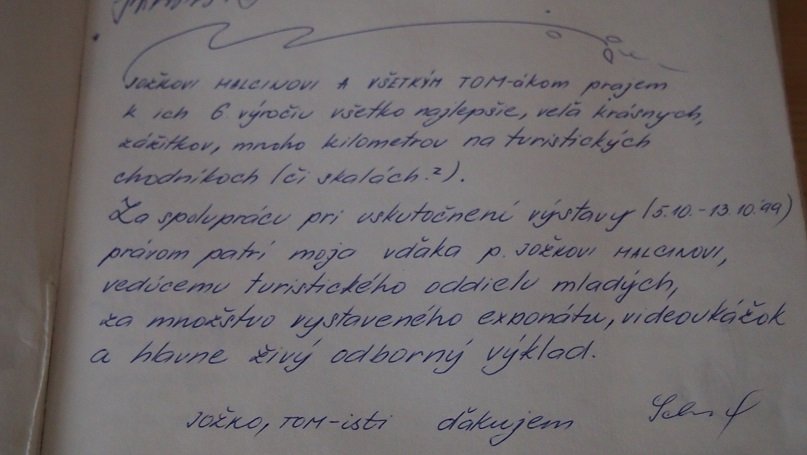 JOŽKOVI MALCINOVI A VŠETKÝM TOM-ákom prajem
k ich 6. výročiu všetko najlepšie, veľa krásnych,
zážitkov, mnoho kilometrov na turistických
chodníkoch (či skalách.?).
Za spoluprácu pri uskutočnení výstavy (5.10.-13.10.'99)
právom patrí moja vďaka p. JOŽKOVI MALCINOVI,
vedúcemu turistického oddielu mladých,
za množstvo vystaveného exponátu, videoukážok
a hlavne živý odborný výklad.
JOŽKO, TOM-isti ďakujem